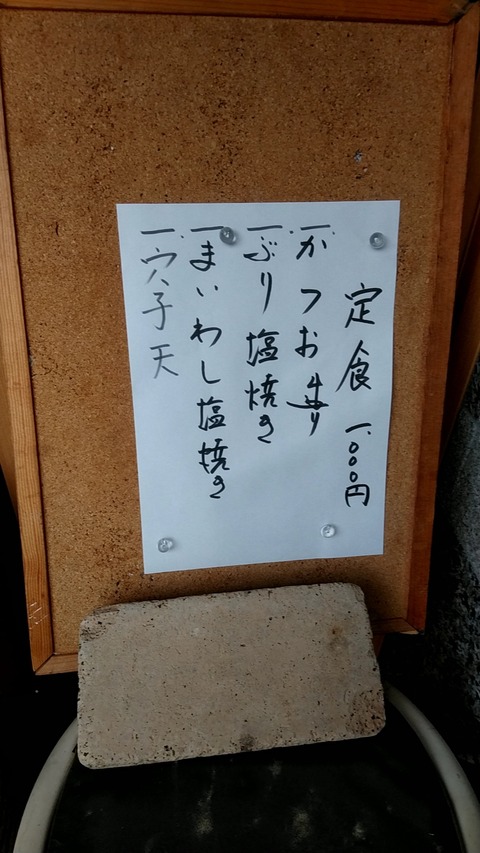 定食 一、〇〇〇円
一、かつお造り
一、ぶり塩焼き
一、まいわし塩焼き
一、穴子天